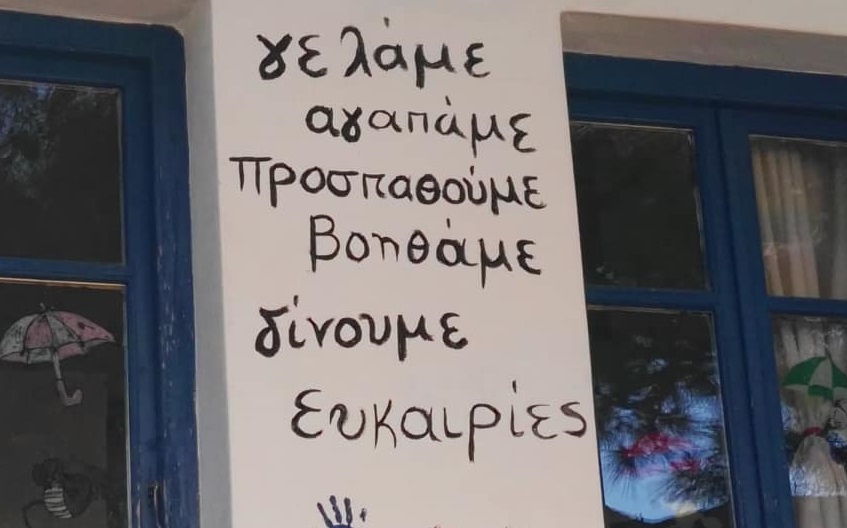 γελάμε
αγαπάμε
Προσπαθούμε
βοηθάμε
δίνουμε
ευκαιρίες